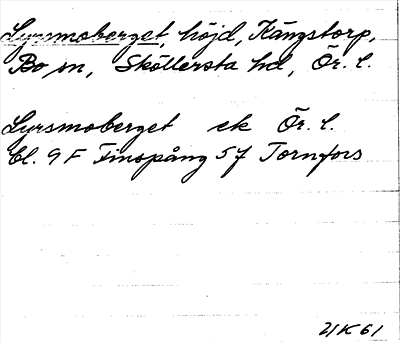 Lyrsmoberget, höjd, Kängstorp,
Bo sn, Sköllersta hd, Ör. l.
Lyrsmoberget ek Ör. l.
bl. 9 F Finspång 5 f Tornfors
21 K 61